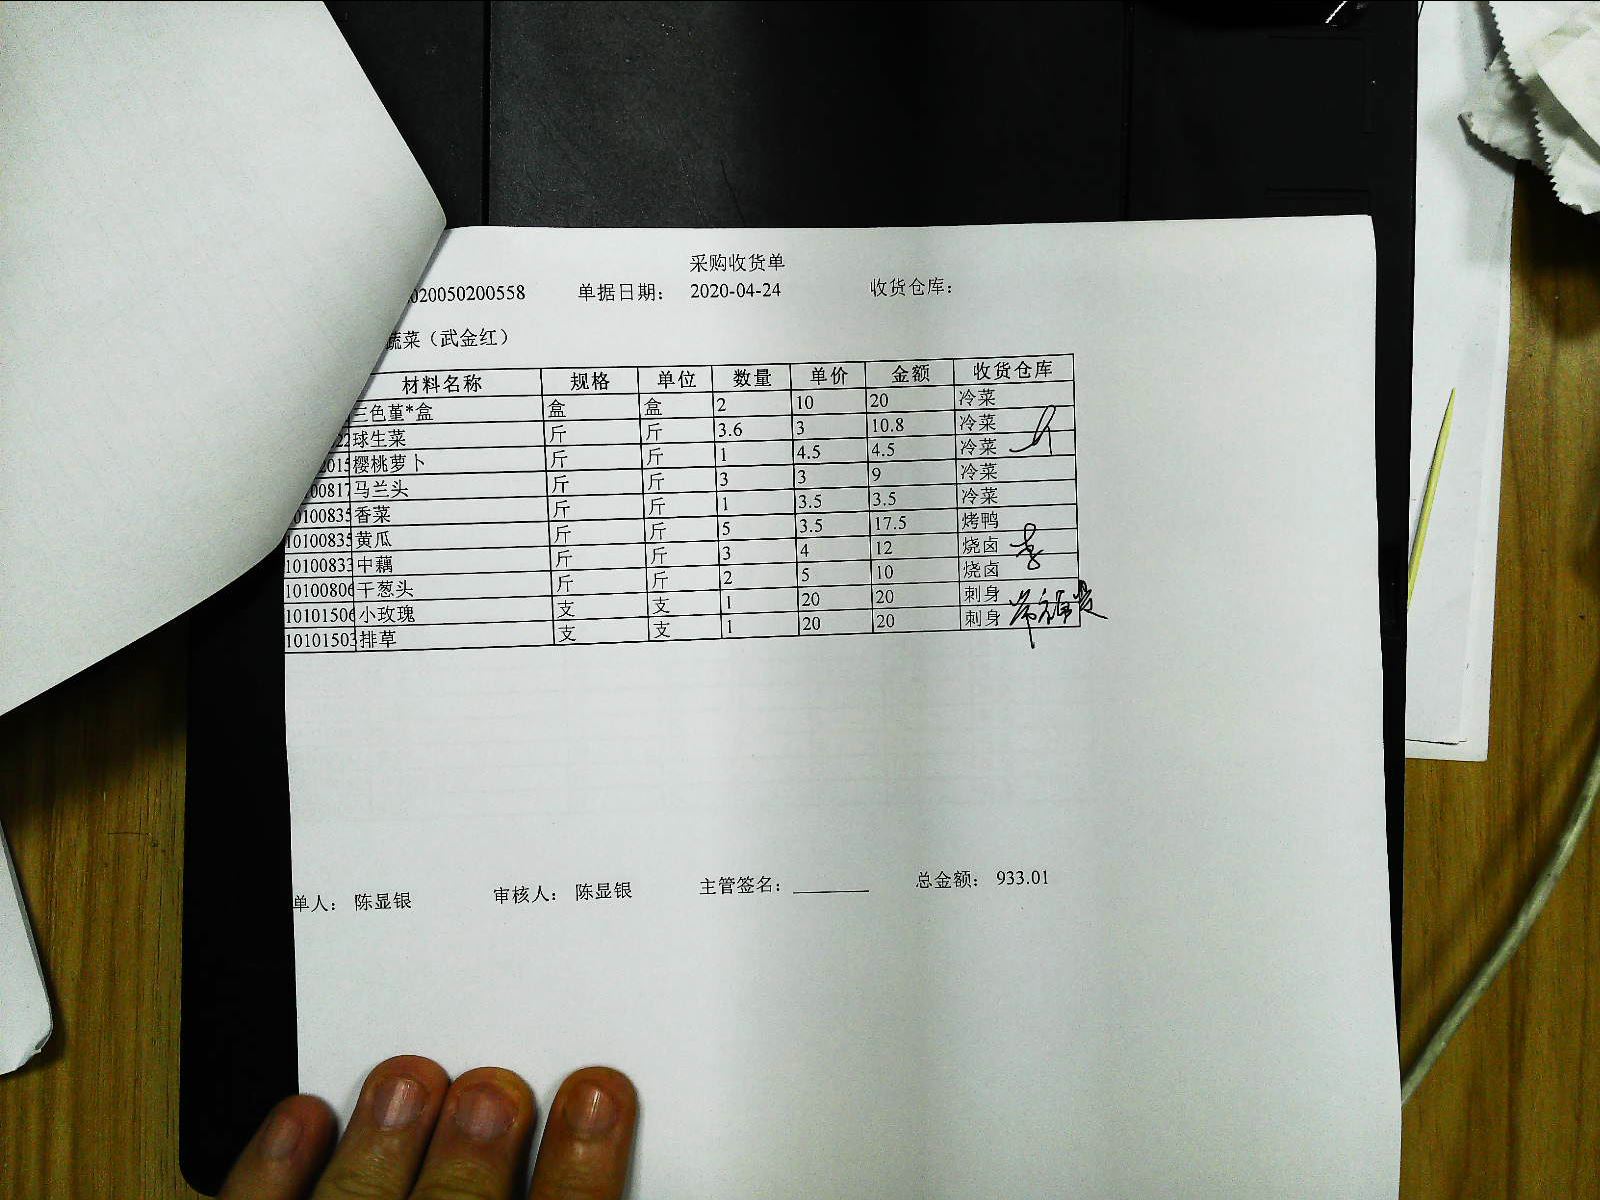 采购收货单
020050200558 单据日期： 2020-04-24 收货仓库：
蔬菜（武金红）
材料名称 规格 单位 数量 单价 金额 收货仓库
三色堇*盒 盒 盒 2 10 20 冷菜
22 球生菜 斤 斤 3.6 3 10.8 冷菜
2015 樱桃萝卜 斤 斤 1 4.5 4.5 冷菜
00817 马兰头 斤 斤 3 3 9 冷菜
0100835 香菜 斤 斤 1 3.5 3.5 冷菜
10100835 黄瓜 斤 斤 5 3.5 17.5 烤鸭
10100833 中藕 斤 斤 3 4 12 烧卤
10100806 干葱头 斤 斤 2 5 10 烧卤
10101506 小玫瑰 支 支 1 20 20 刺身
10101503 排草 支 支 1 20 20 刺身
单人： 陈显银 审核人： 陈显银 主管签名： 总金额： 933.01